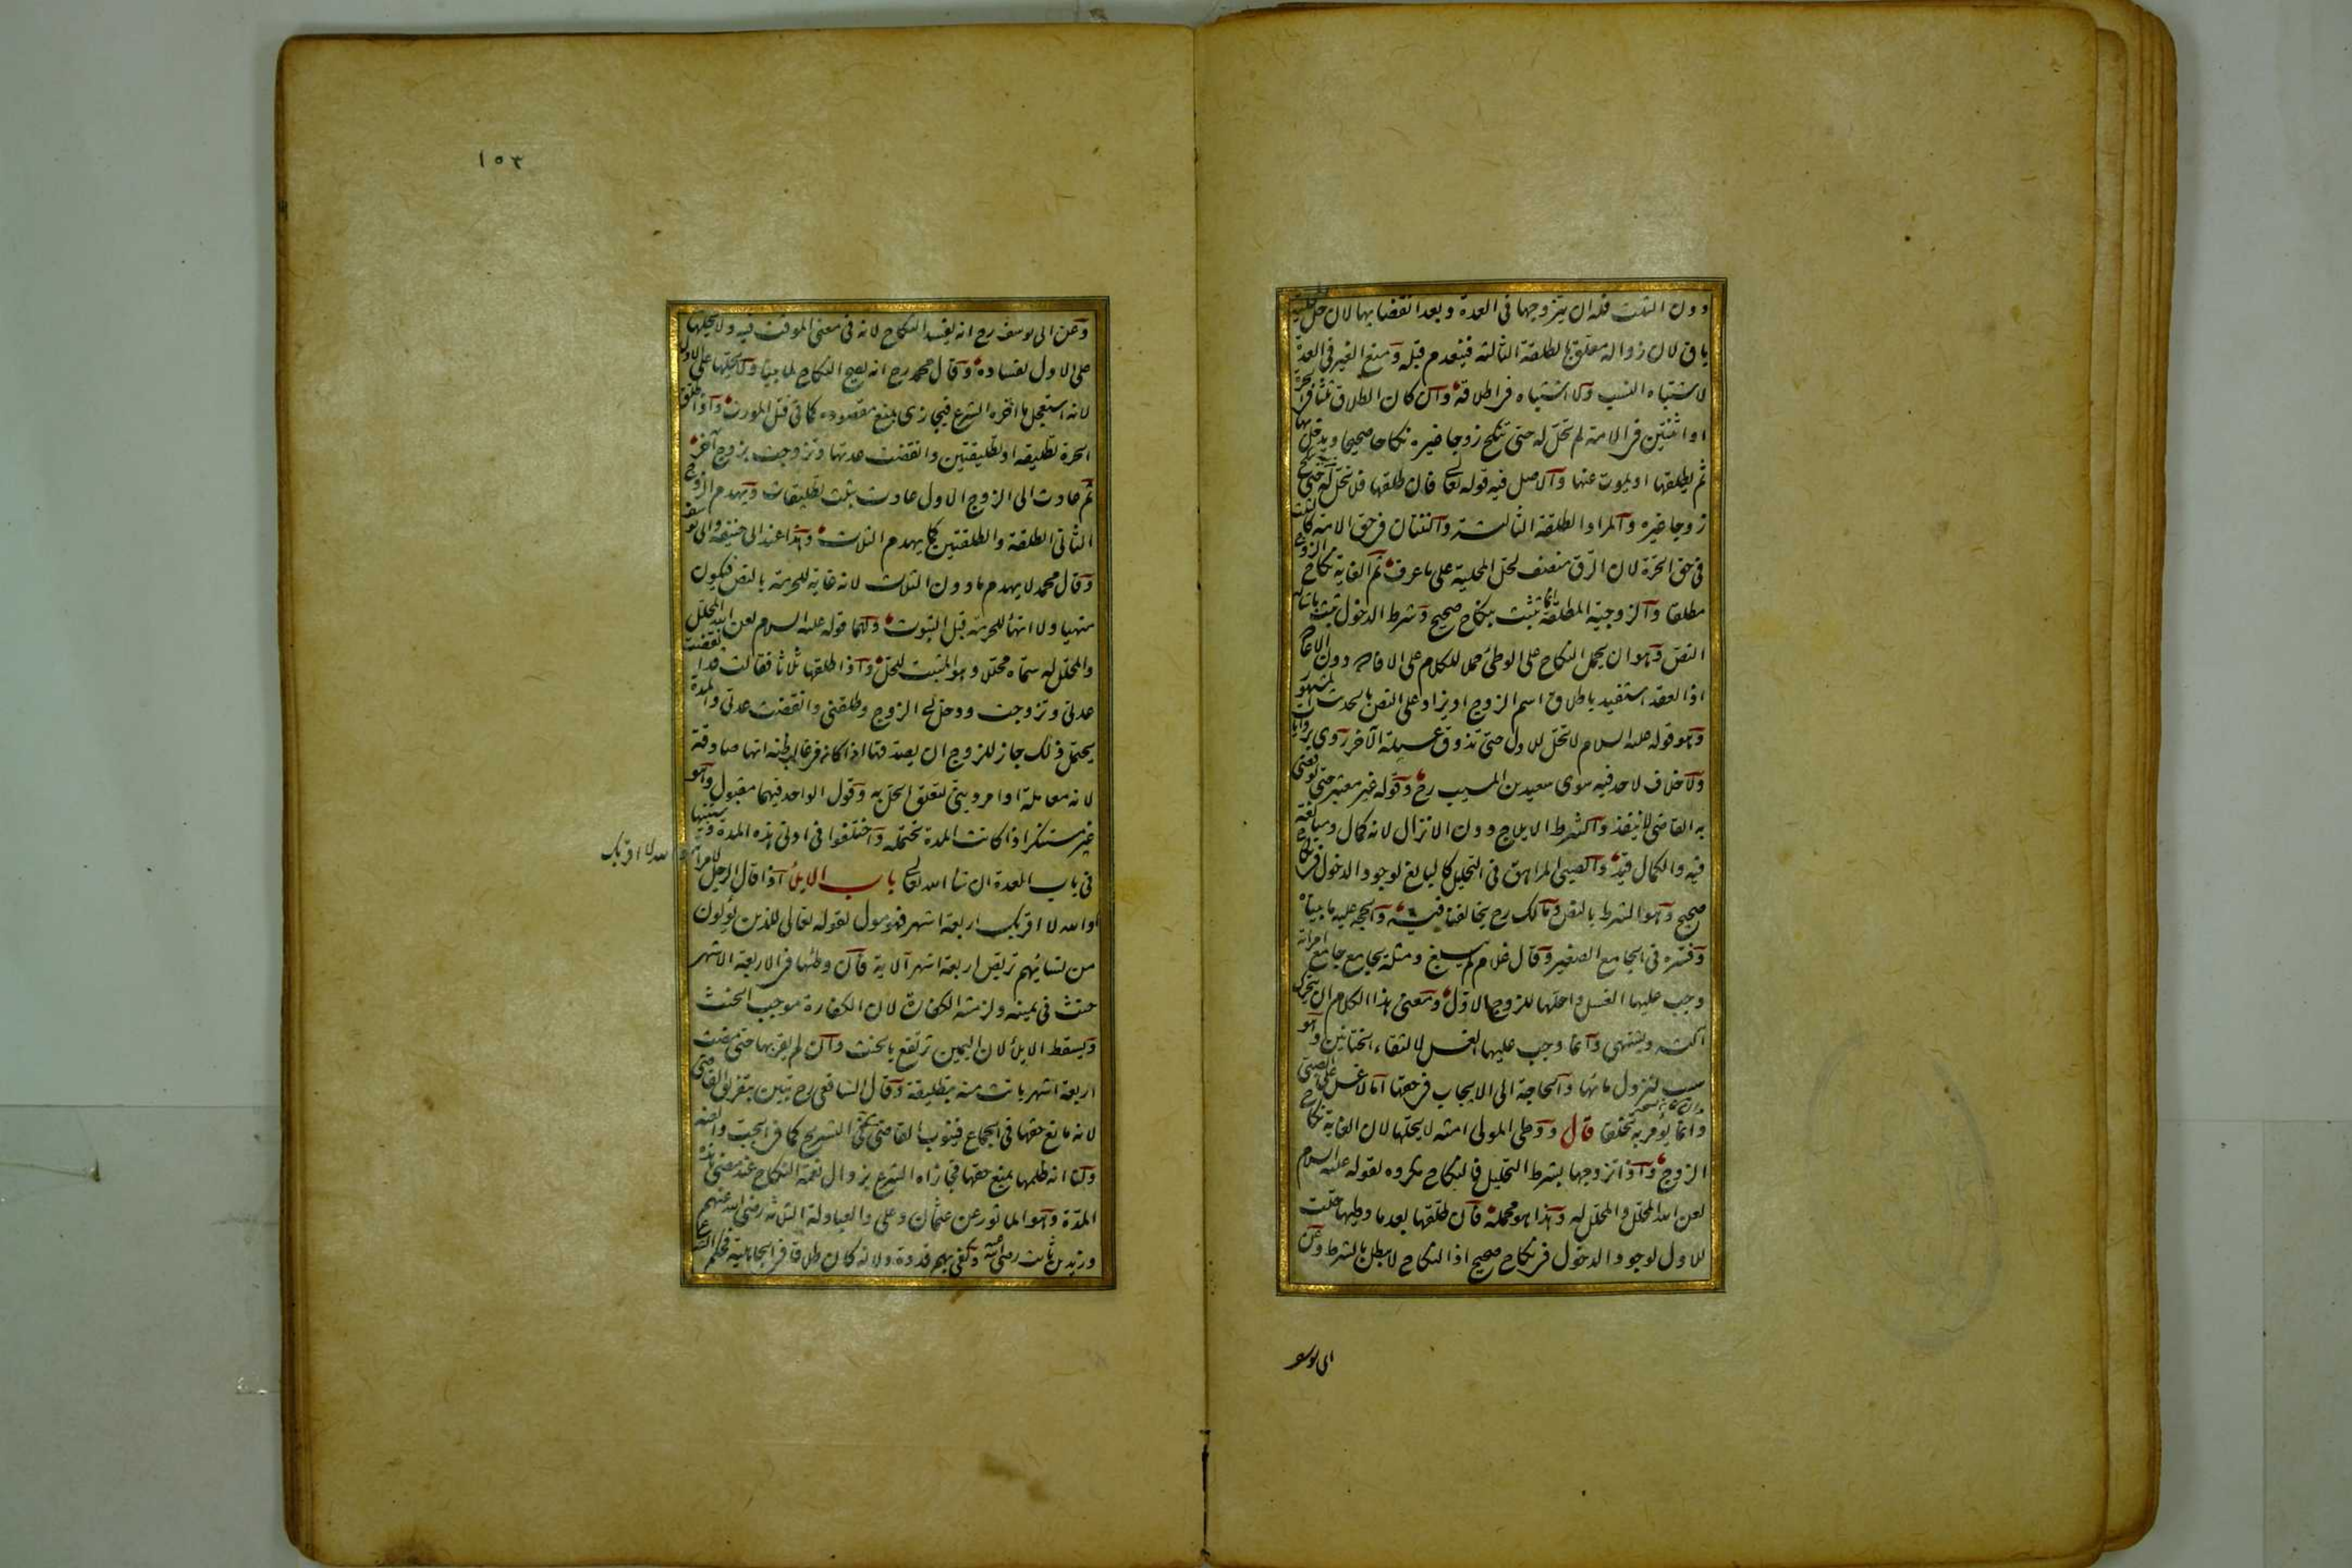 دون الثلث فله ان يتزوجها فى العدة وبعد انقضايها لان حل المحلية
باق لان زواله معلق بالطلقة الثالثة فينعدم قبله ومنع الغير فى العدة
لاشتباه النسب ولا اشتباه فى اطلاقه وان كان الطلاق ثلثا فى الحرة
او اثنتين فى الامة لم تحل له حتى تنكح زوجا غيره نكاحا صحيحا ويدخل بها
ثم يطلقها او يموت عنها والاصل فيه قوله تعالى فان طلقها فلا تحل له حتى تنكح
زوجا غيره والمراد الطلقة الثالثة والثنتان فى حق الامة كالثلث
فى حق الحرة لان الرق منصف لحل المحلية على ما عرف ثم الغاية نكاح الزوج
مطلقا والزوجية المطلقة انما تثبت بنكاح صحيح وشرط الدخول ثبت باشارة
النص وهو ان يحمل النكاح على الوطئ حملا للكلام على الافادة دون الاعادة
اذ العقد استفيد باطلاق اسم الزوج او يزاد على النص بالحديث المشهور
وهو قوله عليه السلام لا تحل للاول حتى تذوق عسيلة الآخر روى بروايات
ولا خلاف لاحد فيه سوى سعيد بن المسيب رح وقوله غير معتبر حتى لو قضى
به القاضى لا ينفذ والشرط الايلاج دون الانزال لانه كمال ومبالغة
فيه والكمال قيد والصبى المراهق فى التحليل كالبالغ لوجود الدخول فى نكاح
صحيح وهو الشرط بالنص ومالك رح يخالفنا فيه والحجة عليه ما بيناه
وفسره فى الجامع الصغير وقال غلام لم يبلغ ومثله يجامع جامع امراته
وجب عليها الغسل واحلها للزوج الاول ومعنى هذا الكلام ان يتحرك
آلته ويشتهى وانما وجب عليها الغسل لالتقاء الختانين وهو
سبب لنزول مائها والحاجة الى الايجاب فى حقها اما لا غسل على الصبى
وانما يؤمر به تخلقا قال ووطى المولى امته لا يحلها لان الغاية نكاح
الزوج واذا تزوجها بشرط التحليل فالنكاح مكروه لقوله عليه السلام
لعن الله المحلل والمحلل له وهذا هو محمله فان طلقها بعد ما وطيها حلت
للاول لوجود الدخول فى نكاح صحيح اذ النكاح لا يبطل بالشرط وعن
ابى يوسف
١٥٣
وعن ابى يوسف رح انه يفسد النكاح لانه فى معنى الموقت فيه ولا يحلها
على الاول لفساده وقال محمد رح انه يصح النكاح لما بينا ولا يحلها على الاول
لانه استعجل ما اخره الشرع فيجازى بمنع مقصوده كما فى قتل المورث واذا طلق
الحرة تطليقة او تطليقتين وانقضت عدتها وتزوجت بزوج آخر
ثم عادت الى الزوج الاول عادت بثلث تطليقات ويهدم الزوج
الثانى الطلقة والطلقتين كما يهدم الثلاث وهذا عند ابى حنيفة وابى يوسف
وقال محمد لا يهدم ما دون الثلاث لانه غاية للحرمة بالنص فيكون
منهيا ولا انهاء للحرمة قبل الثبوت ولهما قوله عليه السلام لعن الله المحلل
والمحلل له سماه محللا وهو المثبت للحل واذا طلقها ثلاثا فقالت قد انقضت
عدتى وتزوجت ودخل بى الزوج وطلقنى وانقضت عدتى والمدة
يحتمل ذلك جاز للزوج ان يصدقها اذا كان فى غالب ظنه انها صادقة
لانه معاملة او امر دينى لتعلق الحل به وقول الواحد فيهما مقبول وهو
غير مستنكر اذا كانت المدة تحتمله واختلفوا فى ادنى هذه المدة وسنبينها
فى باب العدة ان شا الله تعالى باب الايلاء اذا قال الرجل لامراته
والله لا اقربك
او الله لا اقربك اربعة اشهر فهو مول لقوله تعالى للذين يؤلون
من نسائهم تربص اربعة اشهر الاية فان وطئها فى الاربعة الاشهر
حنث فى يمينه ولزمته الكفارة لان الكفارة موجب الحنث
ويسقط الايلاء لان اليمين ترتفع بالحنث وان لم يقربها حتى مضت
اربعة اشهر بانت منه بتطليقة وقال الشافعى رح تبين بتفريق القاضى
لانه مانع حقها فى الجماع فينوب القاضى فى التسريح كما فى الجب والعنة
ولنا انه ظلمها بمنع حقها فجازاه الشرع بزوال نعمة النكاح عند مضى هذه
المدة وهو الماثور عن عثمان وعلى والعبادلة الثلثة رضى الله عنهم
وزيد بن ثابت رضى الله عنه وكفى بهم قدوة ولانه كان طلاقا فى الجاهلية فحكم الشرع